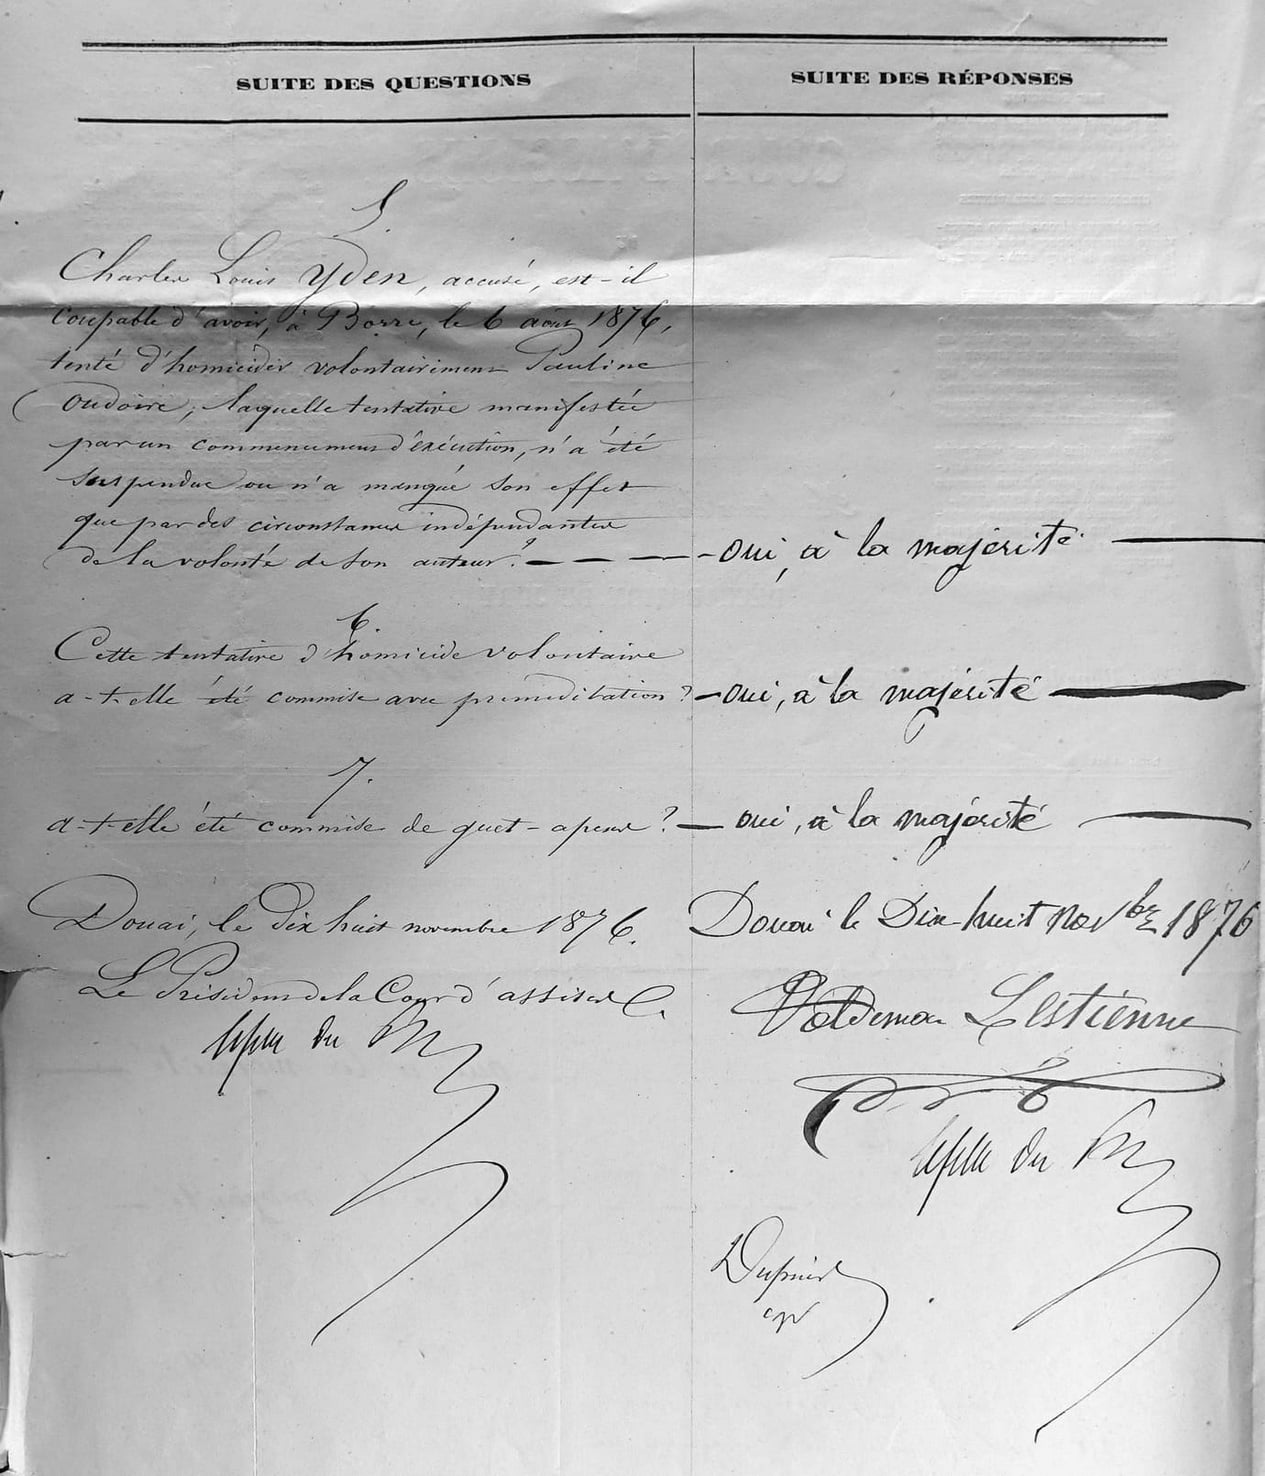 SUITE DES QUESTIONS
SUITE DES RÉPONSES
5.
Charles Louis Yden, accusé, est-il
coupable d'avoir, à Borre, le 6 août 1876,
tenté d'homicider volontairement Pauline
Oudoire, laquelle tentative manifestée
par un commencement d'exécution, n'a été
suspendue ou n'a manqué son effet
que par des circonstances indépendantes
de la volonté de son auteur ? — — — oui, à la majorité —
6.
Cette tentative d'homicide volontaire
a-t-elle été commise avec preméditation ? — oui, à la majorité —
7.
a-t-elle été commise de guet-apens ? — oui, à la majorité —
Douai, le dix huit novembre 1876.
Le Président de la Cour d'assises
du
Douai le Dix-huit novbre 1876
Valdemar Lestienne
du